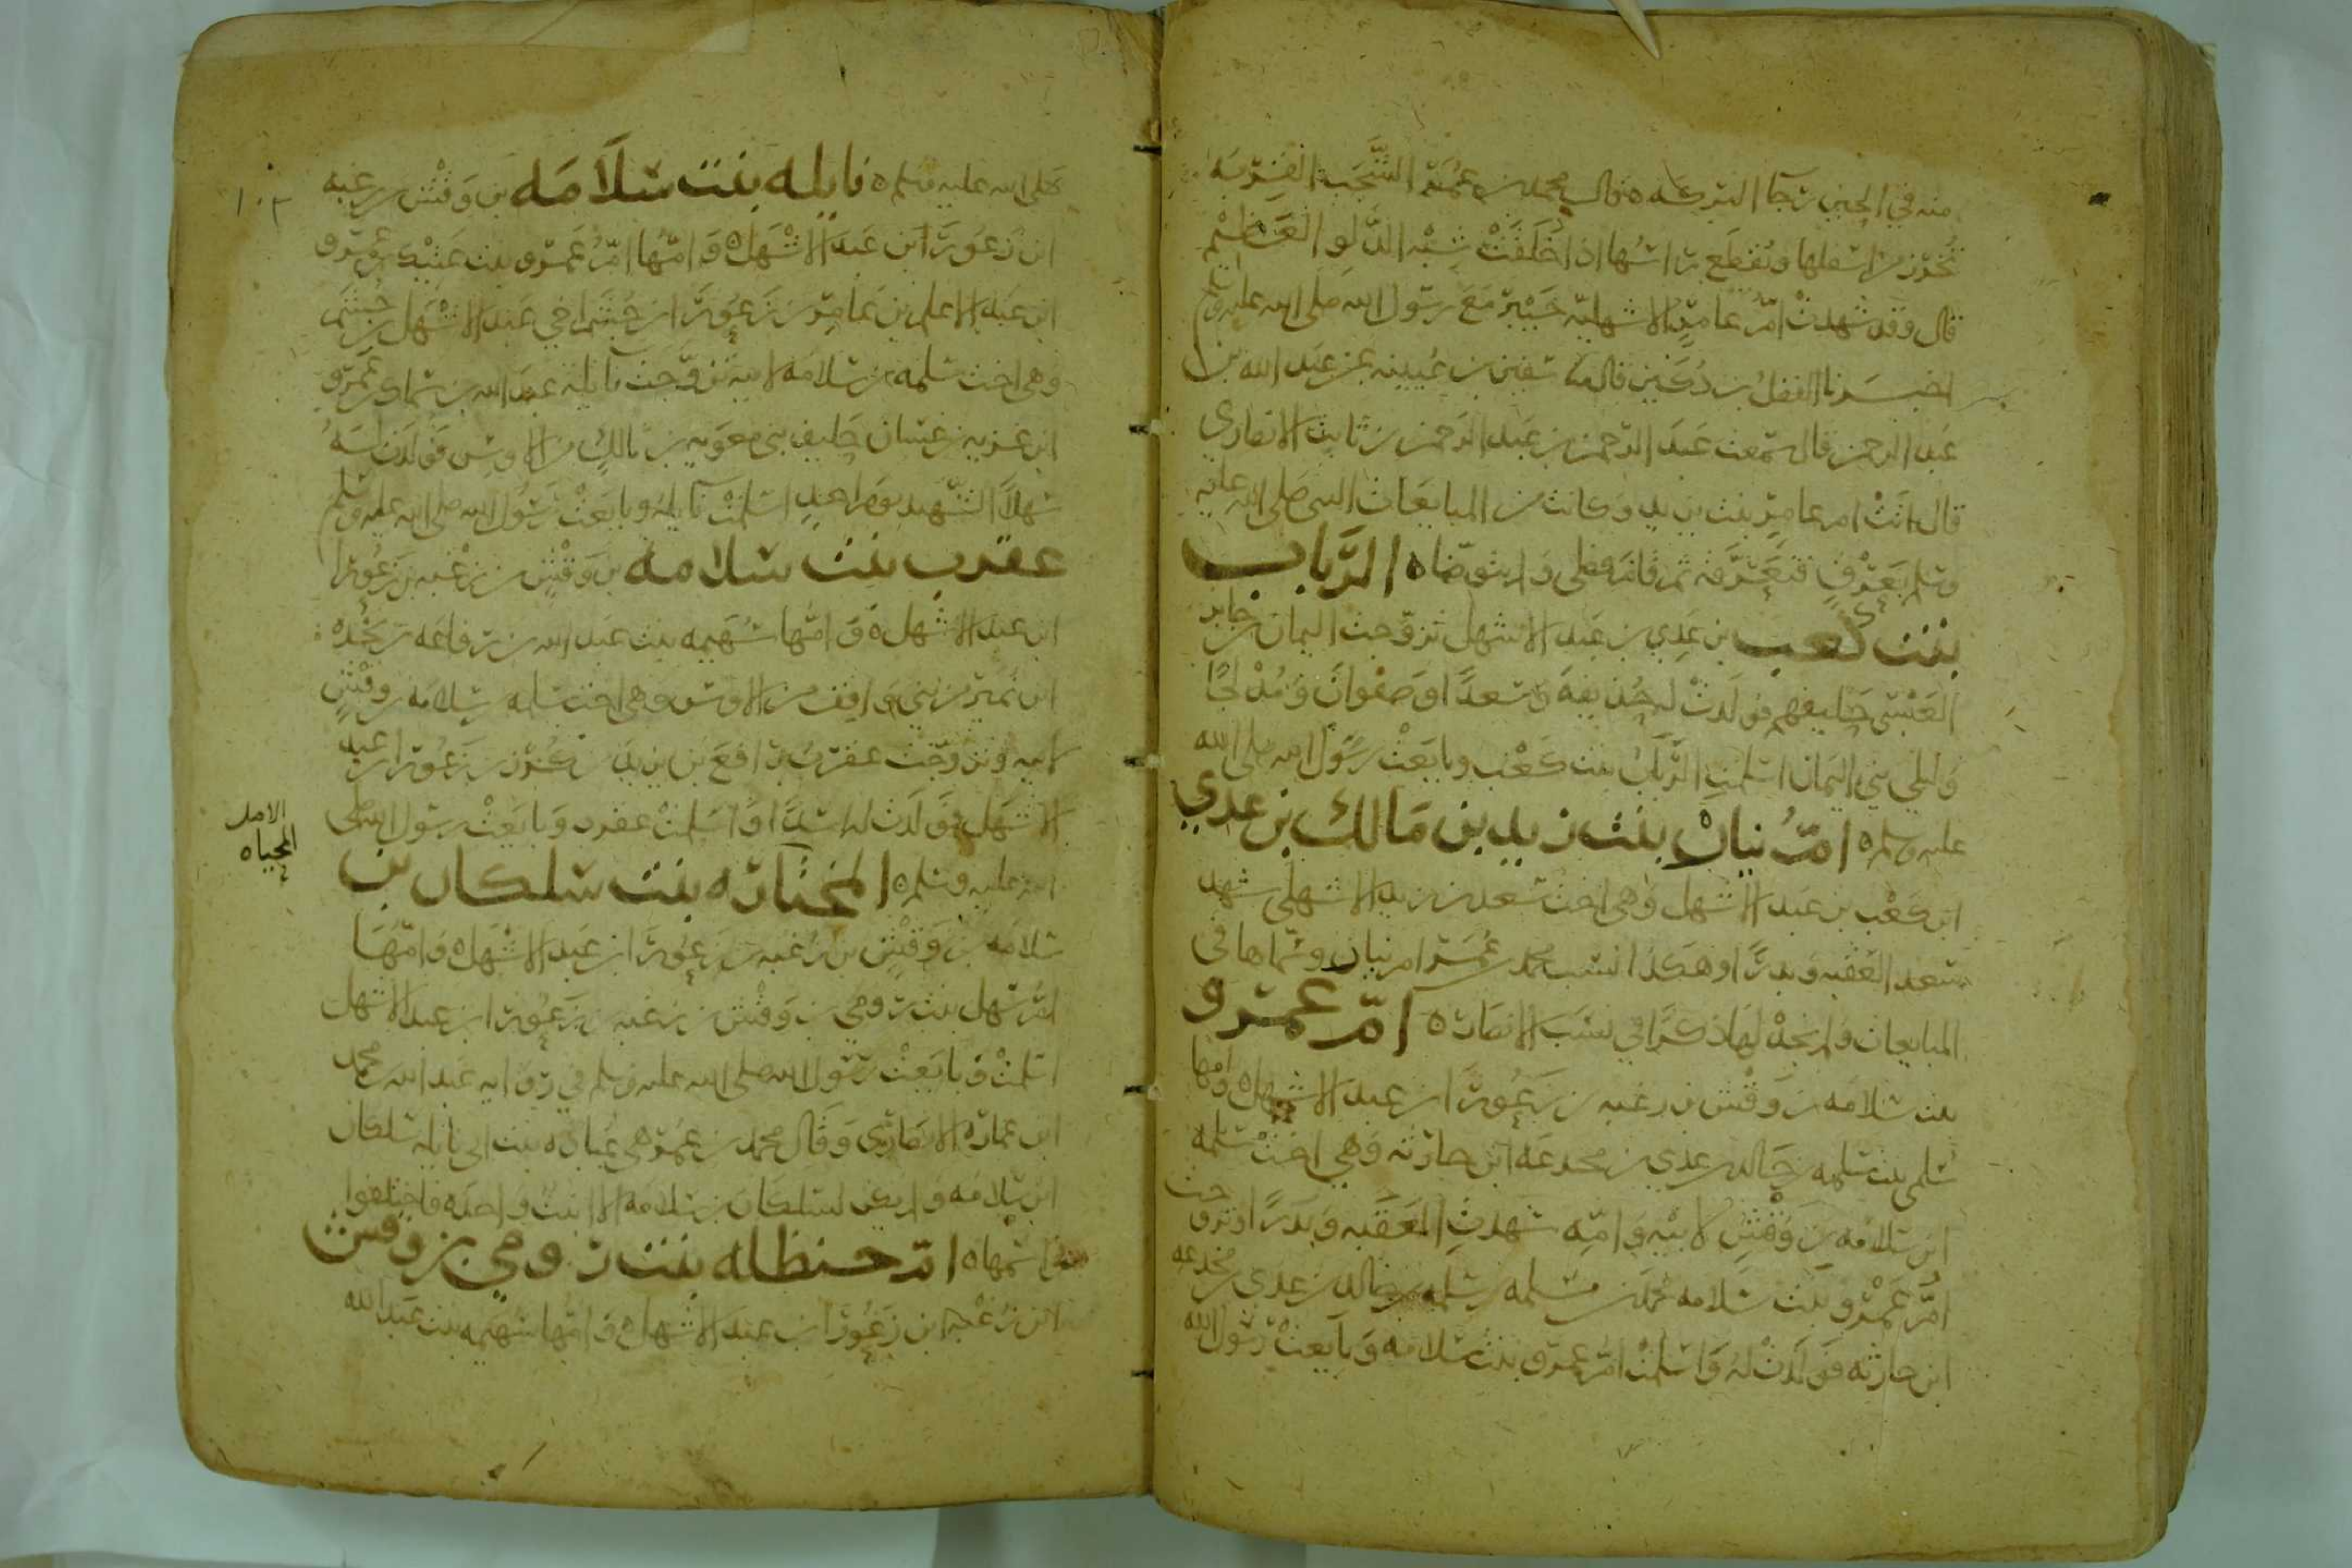 منه في الحين رجا البركه ه قال محمد بن عمر الشجب القربه
تخرز من اسفلها ويقطع راسها اذا خلقت شبه الدلو العظيم
قال وقد شهدت ام عامر الاشهليه خيبر مع رسول الله صلى الله عليه وسلم
اخبرنا الفضل بن دكين قال سفين بن عيينه عن عبد الله بن
عبد الرحمن قال سمعت عبد الرحمن بن عبد الرحمن بن ثابت الانصاري
قال اتت ام عامر بنت يزيد وكانت من المبايعات النبي صلى الله عليه
وسلم بعرق فتعرقه ثم قام فصلى ولم يتوضا ه الرباب
بنت كعب بن عدي بن عبد الاشهل تزوجت اليمان بن جابر
العبسي حليفهم فولدت له حذيفه وسعدا وصفوان ومدلجا
وليلى بني اليمان اسلمت الرباب بنت كعب وبايعت رسول الله صلى الله
عليه وسلم ه ام نيار بنت زيد بن مالك بن عدي
ابن كعب بن عبد الاشهل وهي اخت سعد بن زيد الاشهلي شهد
سعد العقبه وبدرا وهكذا نسب محمد بن عمر ام نيار وسماها في
المبايعات ولم نجد لها ذكرا في نسب الانصار ه ام عمرو
بنت سلامه بن وقش بن زغبه بن زعورا بن عبد الاشهل ه وامها
سلمى بنت سلمه بن خالد بن عدي بن مجدعه ابن حارثه وهي اخت سلمه
ابن سلامه بن وقش لابيه وامه شهدت العقبه وبدرا وتزوجت
ام عمرو بنت سلامه محمد بن مسلمه بن سلمه بن خالد بن عدي بن مجدعه
ابن حارثه فولدت له واسلمت ام عمرو بنت سلامه وبايعت رسول الله
صلى الله عليه وسلم ه نايله بنت سلامه بن وقش بن زغبه
ابن زعورا ابن عبد الاشهل ه وامها ام عمرو بنت عتيك بن عمرو
ابن عبد الاعلى بن عامر بن زعورا بن جشم اخي عبد الاشهل بن جشم
وهي اخت سلمه بن سلامه لابيه تزوجت نايله عبد الله بن سماك بن عمرو
ابن غزيه بن غسان حليف بني معويه بن مالك من الاوس فولدت له
سهلا الشهيد يوم احد اسلمت نايله وبايعت رسول الله صلى الله عليه وسلم
عقرب بنت سلامه بن وقش بن زغبه بن زعورا
ابن عبد الاشهل ه وامها سهيمه بنت عبد الله بن رفاعه بن نجده
ابن نمير من بني واقف من الاوس وهي اخت سلمه بن سلامه بن وقش
لابيه وتزوجت عقرب رافع بن يزيد بن كرز بن زعورا بن عبد
الاشهل فولدت له اسيدا واسلمت عقرب وبايعت رسول الله صلى
الله عليه وسلم ه المختاره بنت سلكان بن
سلامه بن وقش بن زغبه بن زعورا بن عبد الاشهل ه وامها
ام سهل بنت رومي بن وقش بن زغبه بن زعورا بن عبد الاشهل
اسلمت وبايعت رسول الله صلى الله عليه وسلم في روايه عبد الله بن محمد
ابن عماره الانصاري وقال محمد بن عمر هي عباده بنت ابي نايله سلكان
ابن سلامه ولم يكن لسلكان بن سلامه الا ابنه واحده فاختلفوا
في اسمها ه ام حنظله بنت رومي بن وقش
ابن زغبه ابن زعورا بن عبد الاشهل ه وامها سهيمه بنت عبد الله
الاصل
المحياه
١٠٣